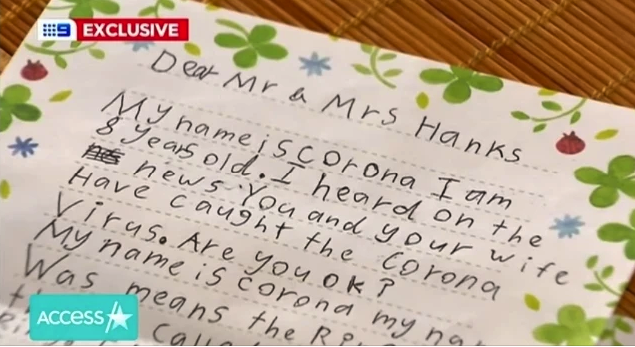 9 EXCLUSIVE
Dear Mr & Mrs Hanks
My name is corona I am
8 years old. I heard on the
news. You and your wife
Have caught the corona
Virus. Are you OK?
My name is corona my
Was means the
ACCESS